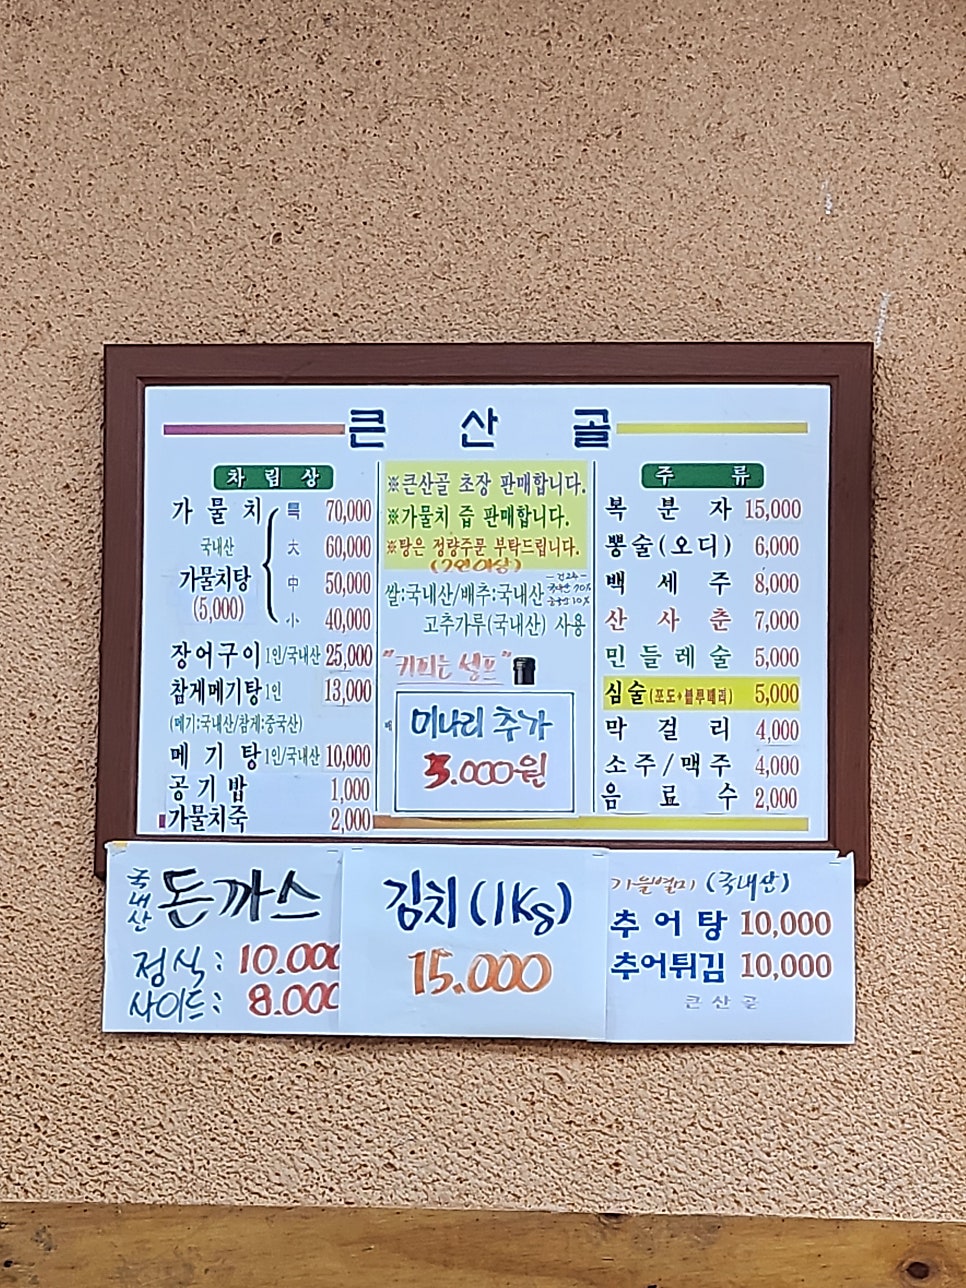 큰 산 골
차 림 상
가 물 치 특 70,000
국내산 大 60,000
가물치탕 中 50,000
(5,000) 小 40,000
장어구이 1인/국내산 25,000
참게메기탕 1인 13,000
(메기:국내산/참게:중국산)
메 기 탕 1인/국내산 10,000
공 기 밥 1,000
가물치죽 2,000
※큰산골 초장 판매합니다.
※가물치 즙 판매합니다.
※탕은 정량주문 부탁드립니다.
(2인이상)
쌀:국내산/배추:국내산
고추가루(국내산) 사용
"커피는 셀프"
미나리 추가
3.000원
주 류
복 분 자 15,000
뽕술(오디) 6,000
백 세 주 8,000
산 사 춘 7,000
민 들 레 술 5,000
심술(포도+블루베리) 5,000
막 걸 리 4,000
소주/맥주 4,000
음 료 수 2,000
국내산 돈까스
정식: 10.000
사이드: 8.000
김치(1kg)
15.000
가을별미 (국내산)
추 어 탕 10,000
추어튀김 10,000
큰 산 골